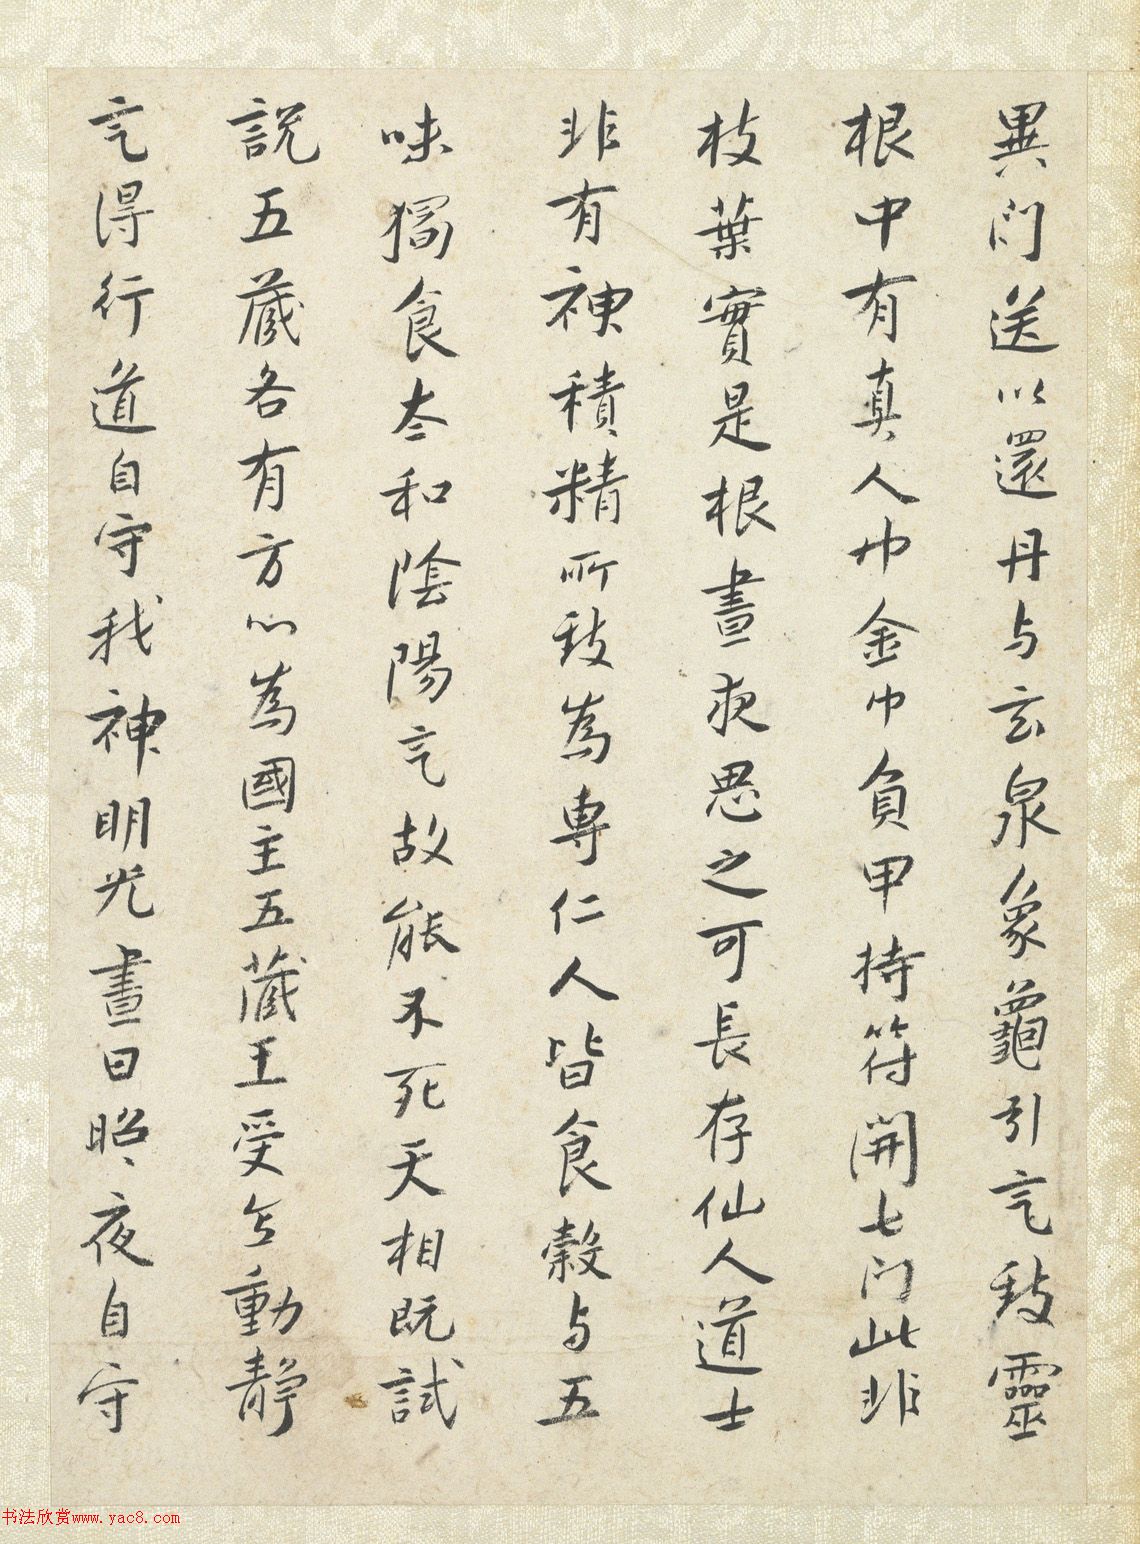 異门送以還丹与玄泉象龜引气致靈
根中有真人巾金巾負甲持符開七门此非
枝葉實是根晝夜思之可長存仙人道士
非有神積精所致為專仁人皆食穀与五
味獨食太和陰陽气故能不死天相既試
說五藏各有方心為國主五藏王受意動靜
气得行道自守我神明光晝日昭〻夜自守
书法欣赏www.yac8.com